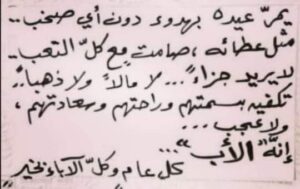 يمرّ عيده بهدوء دون أي صخب..
مثل عطائه، صامت مع كلّ التعب..
لا يريد جزاءً... لا مالاً ولا ذهباً..
تكفيه بسمتهم وراحتهم وسعادتهم،
ولا عجب...
إنّه "الأب"...
كل عام وكلّ الآباء بخير